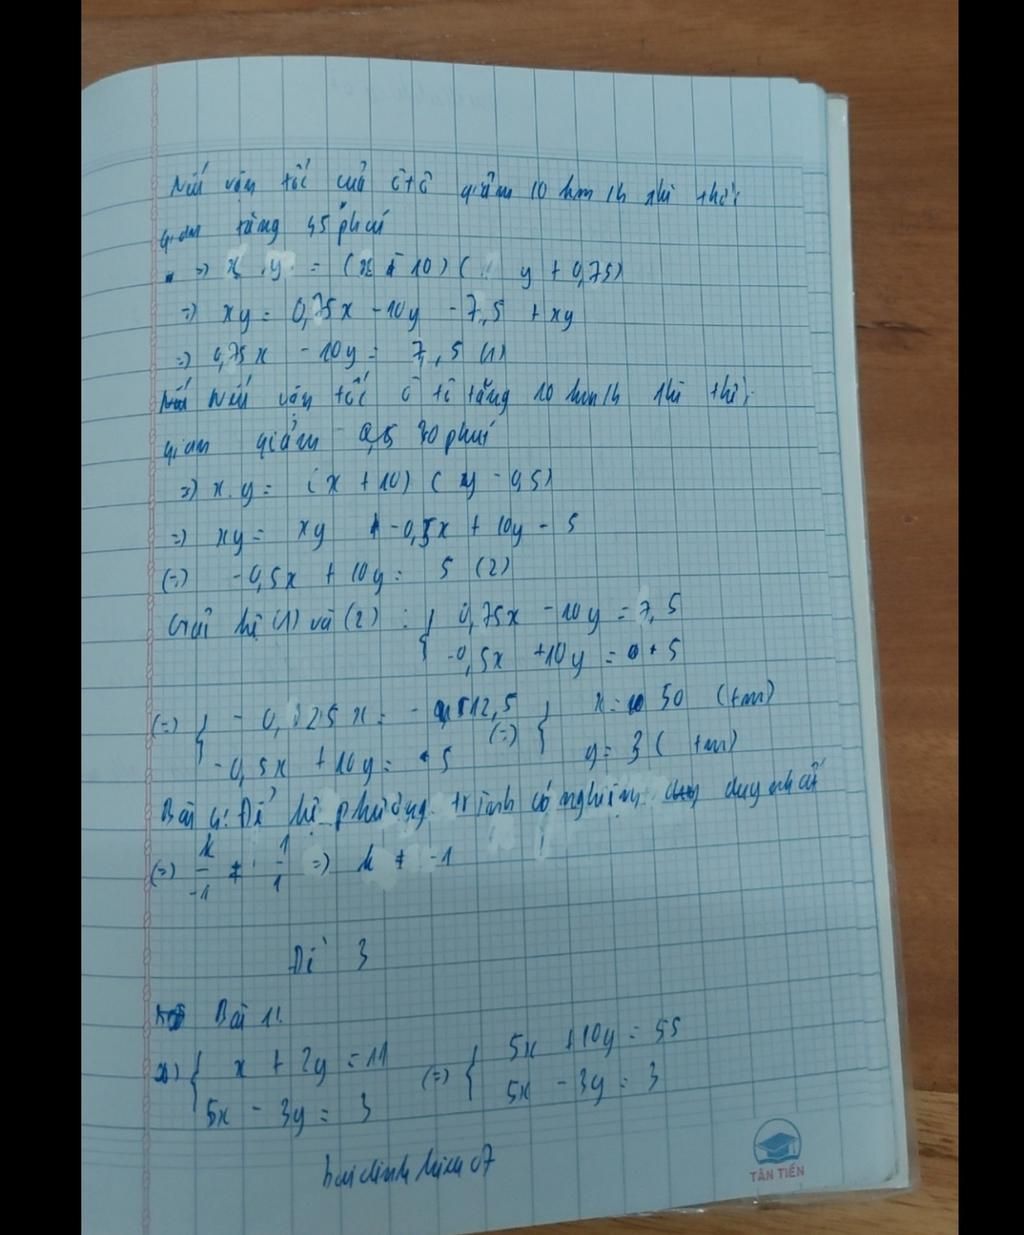 Nếu vận tốc của ôtô giảm 10 km/h thì thời
gian tăng 45 phút
=) x . y = (x - 10) ( y + 0,75)
=) xy = 0,75x - 10y - 7,5 + xy
=) 0,75x - 10y = 7,5 (1)
Nếu vận tốc ô tô tăng 10 km/h thì thời
gian giảm 30 phút
=) x.y = (x + 10) ( y - 0,5)
=) xy = xy - 0,5x + 10y - 5
(=) -0,5x + 10y = 5 (2)
Giải hệ (1) và (2) : { 0,75x - 10y = 7,5
-0,5x + 10y = 5
(=) { 5x = 12,5 (=) { x = 50 (tm)
-0,5x + 10y = 5 y = 3 ( tm)
Bài 4: Để hệ phương trình có nghiệm duy nhất
(=) k/-1 ≠ 1/1 =) k ≠ -1
Đề 3
Bài 1:
{ x + 2y = 11 (=) { 5x + 10y = 55
5x - 3y = 3 5x - 3y = 3
TÂN TIẾN